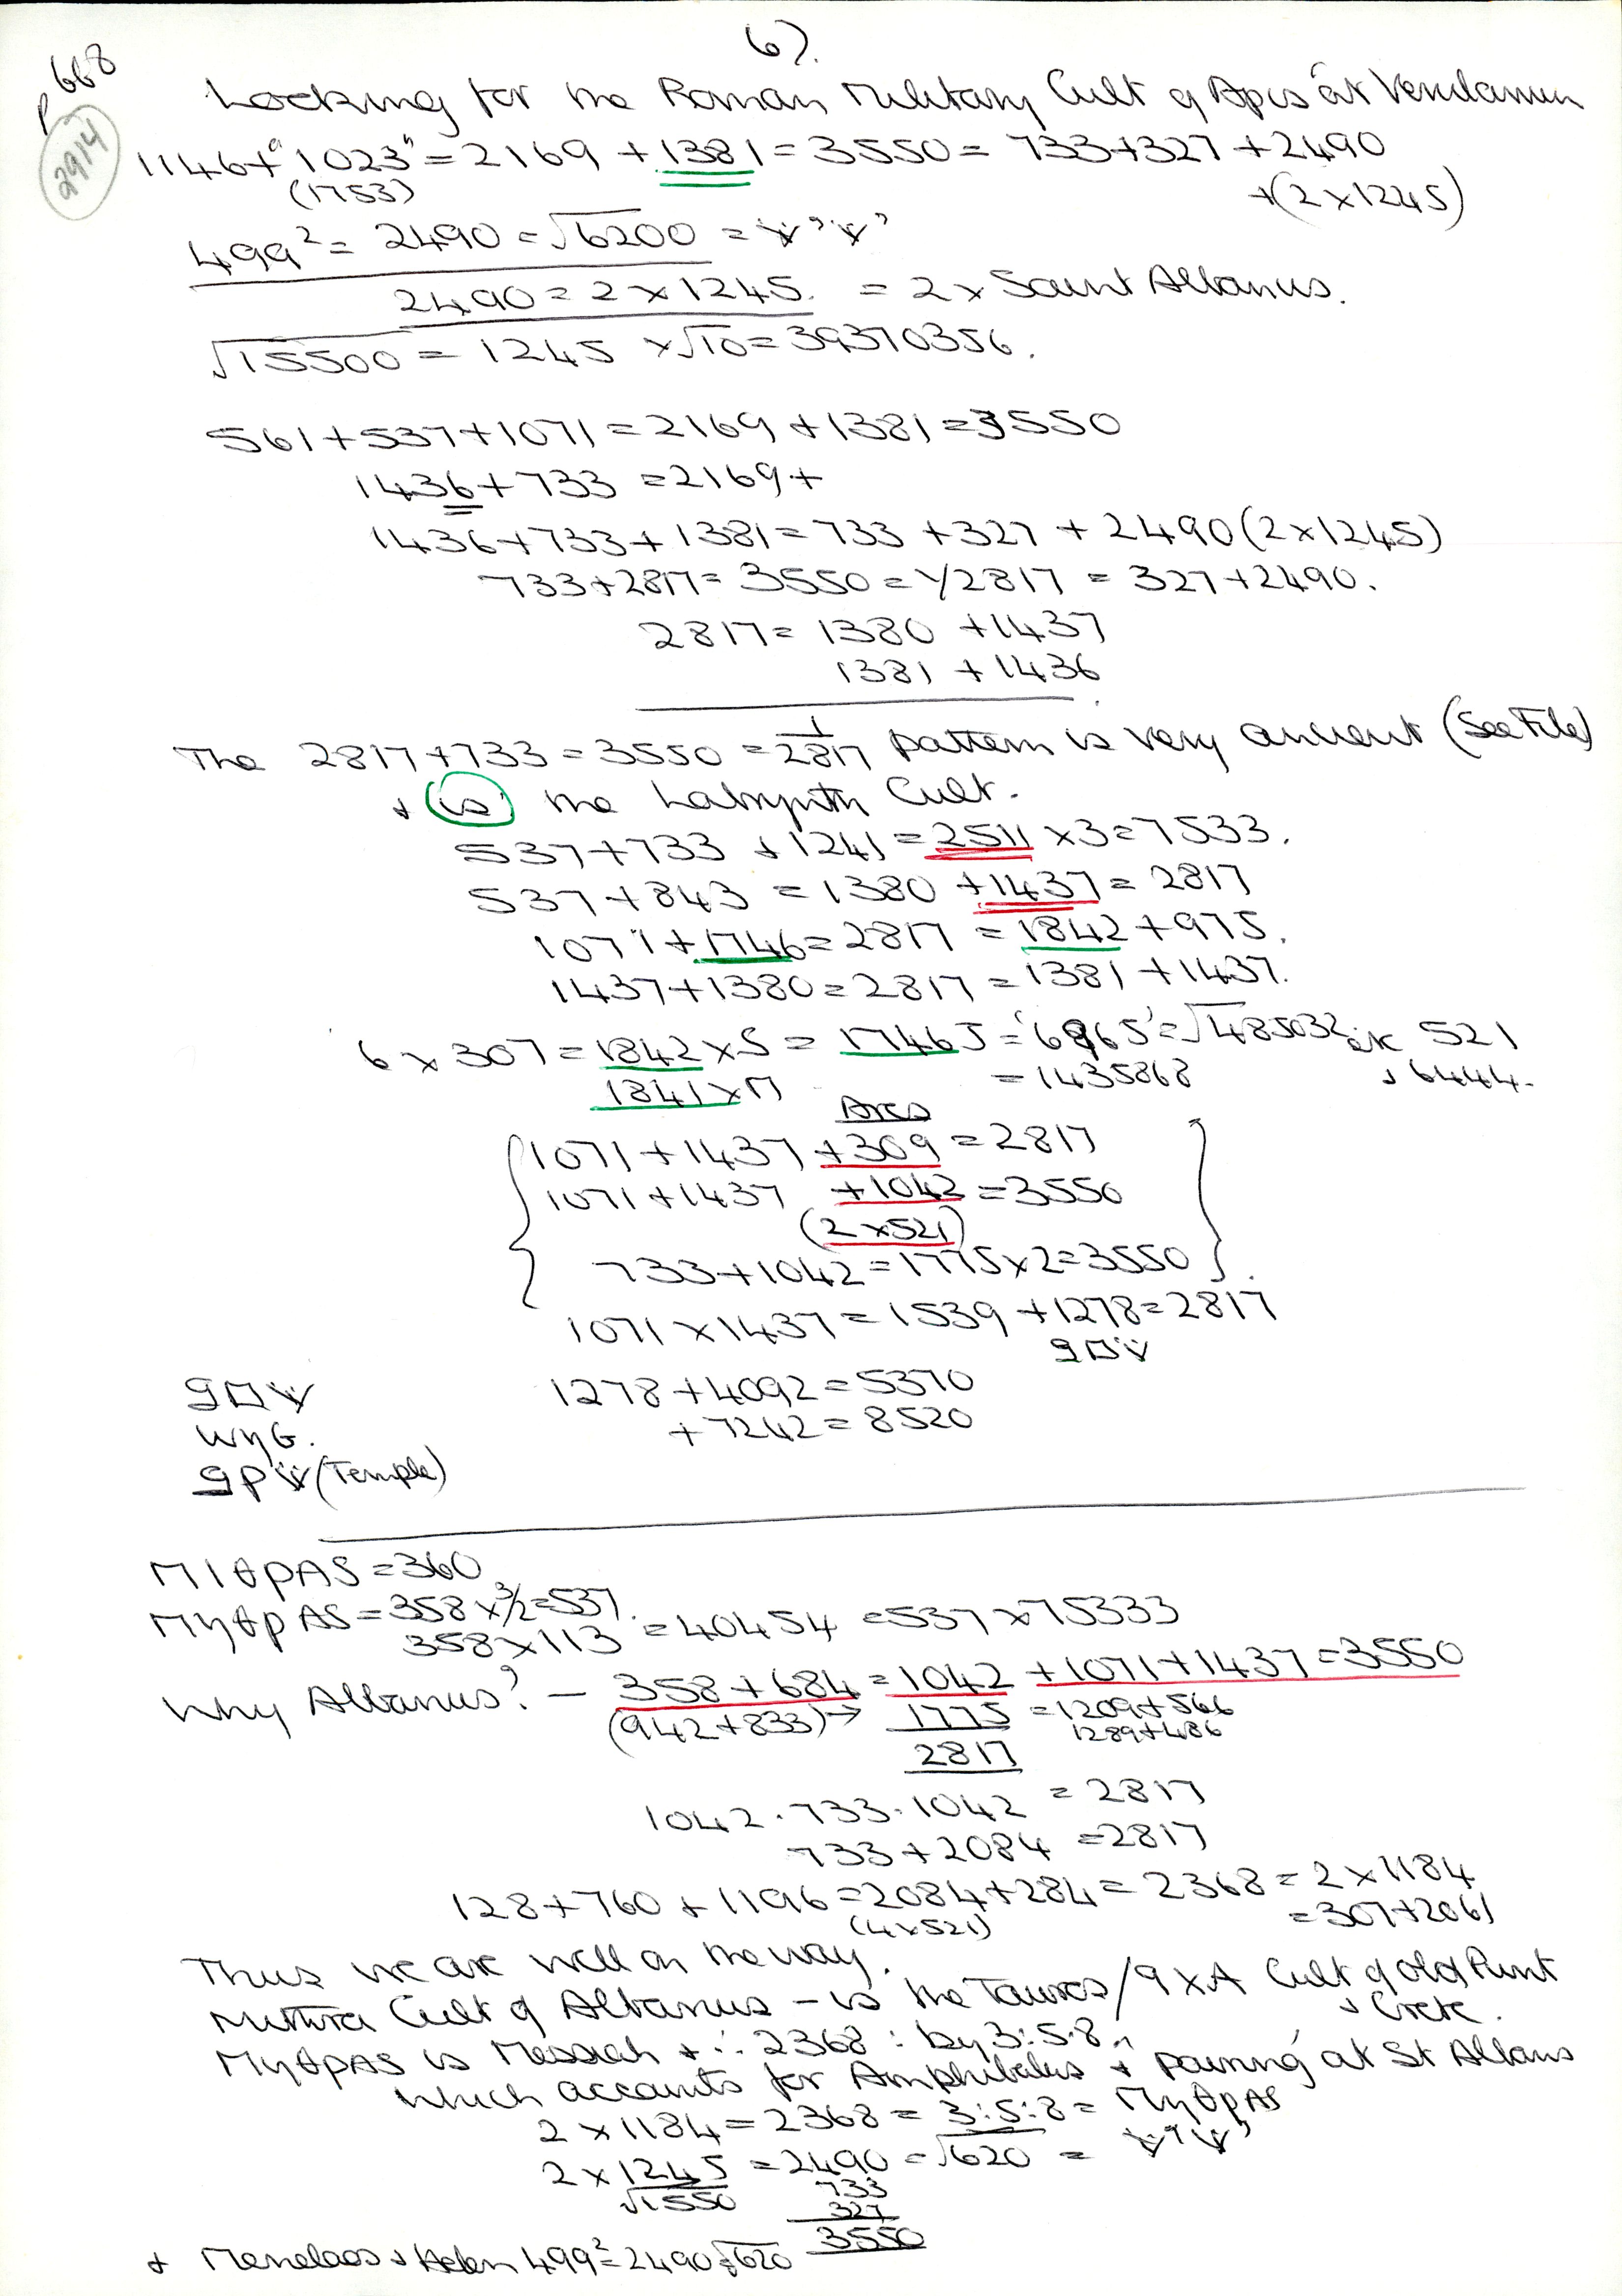 6).
p668
2914
Looking for the Roman Military Cult of Apis at Verulamium
1146+"1023" = 2169 + 1381 = 3550 = 733+327 +2490
(1753) +(2x1245)
499² = 2490 = √6200 =
2490 = 2 x 1245. = 2 x Saint Albanus.
√15500 = 1245 x√10=39370356.
561+537+1071 = 2169 +1381 = 3550
1436+733 =2169+
1436+733+1381=733 +327 + 2490(2x1245)
733+2817= 3550 = 1/2817 = 327+2490.
2817= 1380 +1437
1381 +1436
The 2817+733=3550 = 1/2817 pattern is very ancient (See File)
+ (is) the Labrynth Cult.
537+733 +1241=2511 x3=7533.
537+843 = 1380 +1437= 2817
1071+1746=2817 = 1842+975.
1437+1380=2817 = 1381 +1437.
6 x 307 = 1842 x 5 = 17465 = '6965' = √485032 521
1841 x Π = 1435868 + 6444.
Arcs
1071+1437 +309 = 2817
1071+1437 +1042 = 3550
(2 x521)
733+1042=1775x2=3550
1071 x1437 = 1539 +1278=2817
1278+4092=5370
+7242= 8520
(Temple)
MIθρAS =360
MηθρAS = 358 x 3/2=537.
358x113 =40454 =537x75333
Why Albanus? — 358+684=1042 +1071+1437=3550
(942+833)→ 1775 =1209+566
1289+486
2817
1042.733.1042 = 2817
733+2084 =2817
128+760 +1196=2084+284= 2368 = 2 x 1184
(4x521) =307+2061
Thus we are well on the way.
Mithra Cult of Albanus — is the Taurus/9 xA Cult of Old Punt
+ Crete.
MηθρAS is Messiah + ∴ 2368 : by 3:5:8
which accounts for Amphibalus + pairing at St Albans
2 x 1184 = 2368 = 3:5:8 = MηθρAS
2 x 1245 =2490 =√620 =
√1550 733
327
3550
+ Menelaos + Helen 499²=2490=√620